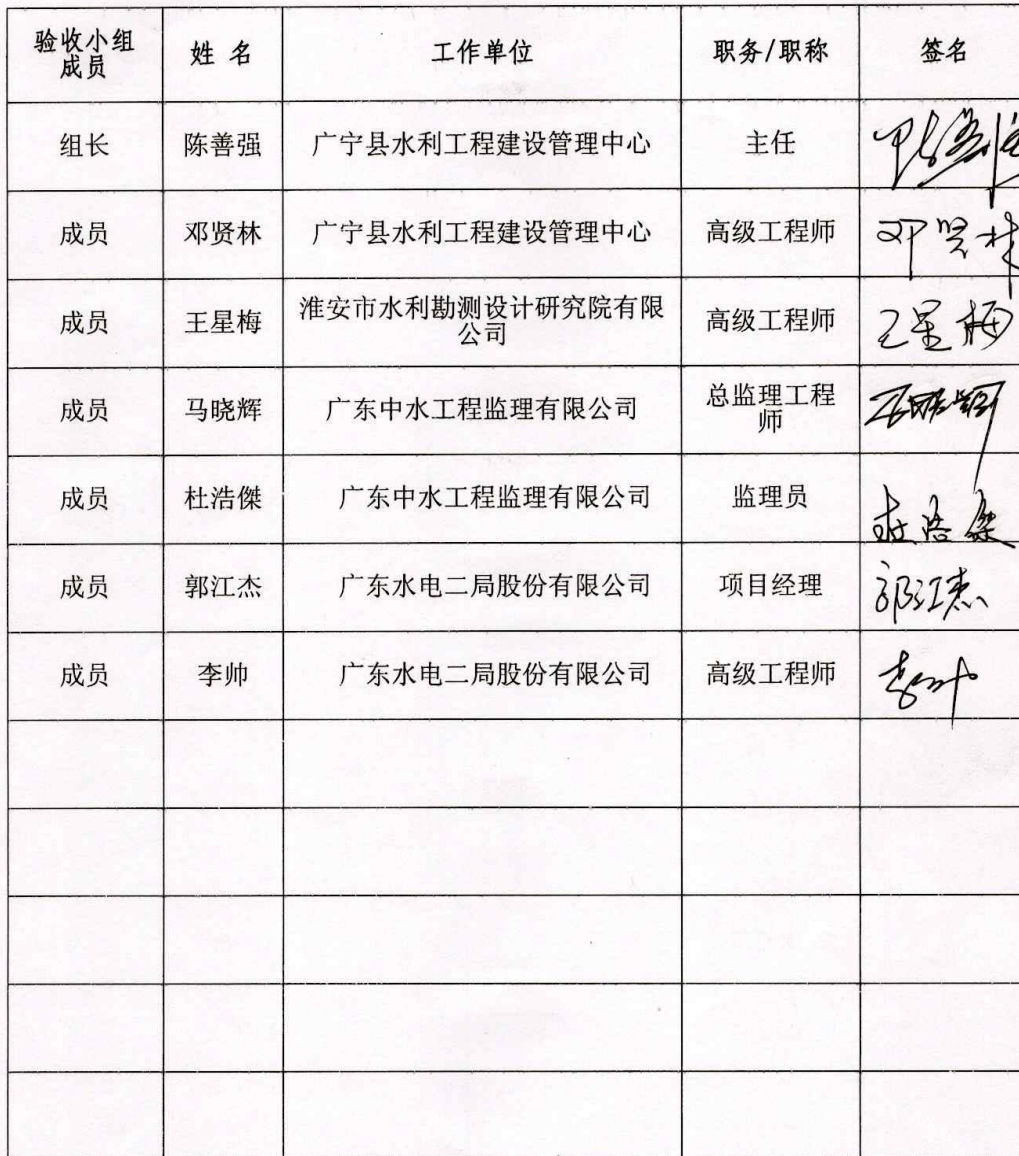 验收小组
成员
姓 名
工作单位
职务/职称
签名
组长
陈善强
广宁县水利工程建设管理中心
主任
成员
邓贤林
广宁县水利工程建设管理中心
高级工程师
邓贤林
成员
王星梅
淮安市水利勘测设计研究院有限
公司
高级工程师
王星梅
成员
马晓辉
广东中水工程监理有限公司
总监理工程
师
成员
杜浩傑
广东中水工程监理有限公司
监理员
杜浩傑
成员
郭江杰
广东水电二局股份有限公司
项目经理
郭江杰
成员
李帅
广东水电二局股份有限公司
高级工程师
李帅